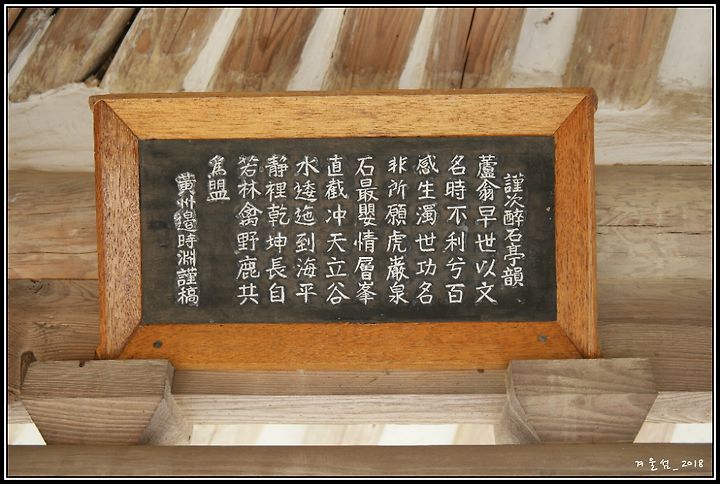 謹次醉石亭韻
蘆翁早世以文
名時不利兮百
感生濁世功名
非所願虎巖泉
石最嬰情層峯
直截冲天立谷
水逶迤到海平
靜裡乾坤長自
若林禽野鹿共
爲盟
黃州邊時淵謹稿
겨울섬_2018